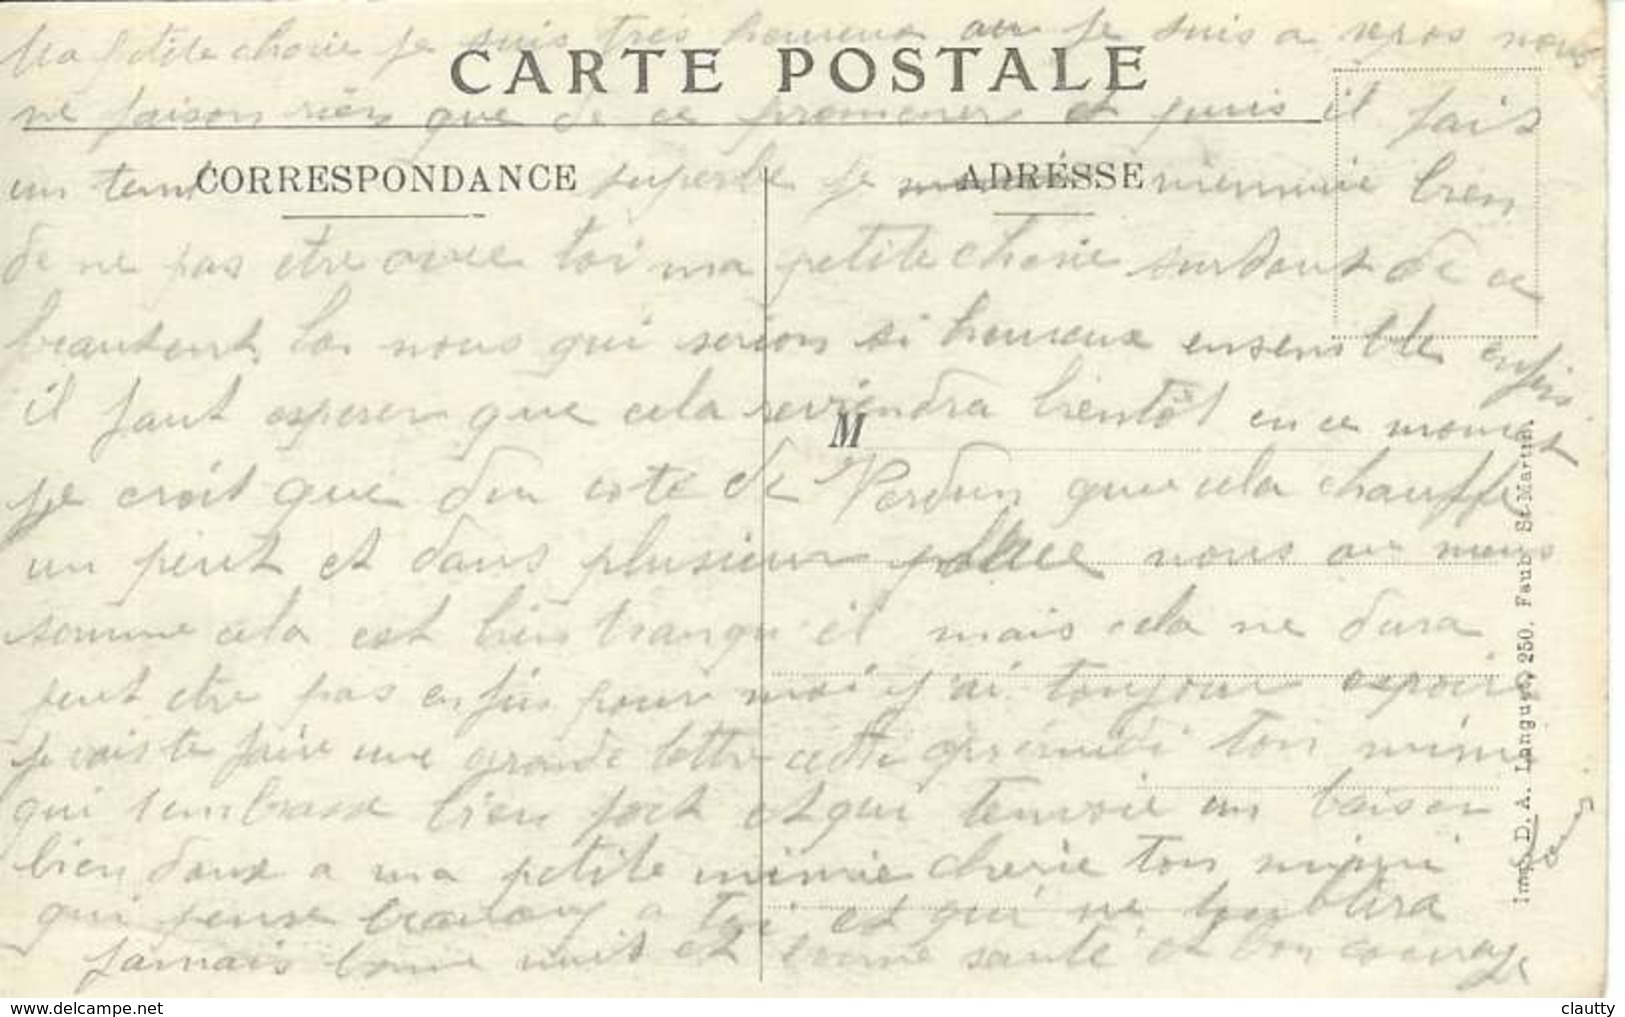 Ma petite cherie je suis tres heureux car je suis a repos nous
CARTE POSTALE
ne faison rien que de ce promener et puis il fais
un temp superbe je mennuie bien
CORRESPONDANCE
ADRESSE
de ne pas etre avec toi ma petite cherie surtout de ce
beautent la nous qui serion si heureux ensemble enfin
il faut esperer que cela reviendra bientôt en ce moment
M
je croit que du cote de Verdun que cela chauffe
un peut et dans plusieur place nous ou nous
somme cela est bien tranquil mais cela ne dura
peut etre pas enfin pour moi j'ai toujour espoire
je vais te faire une grande lettre cette apremidi ton mimi
qui t'embrasse bien fort et qui tenvoie un baiser
bien doux a ma petite mimie cherie ton mimi
qui pense beaucoup a toi et qui ne toublira
jamais bonne nuit et bonne santé et bon courage
Imp. D. A. Longuet, 250. Faub. St-Martin.
clautty